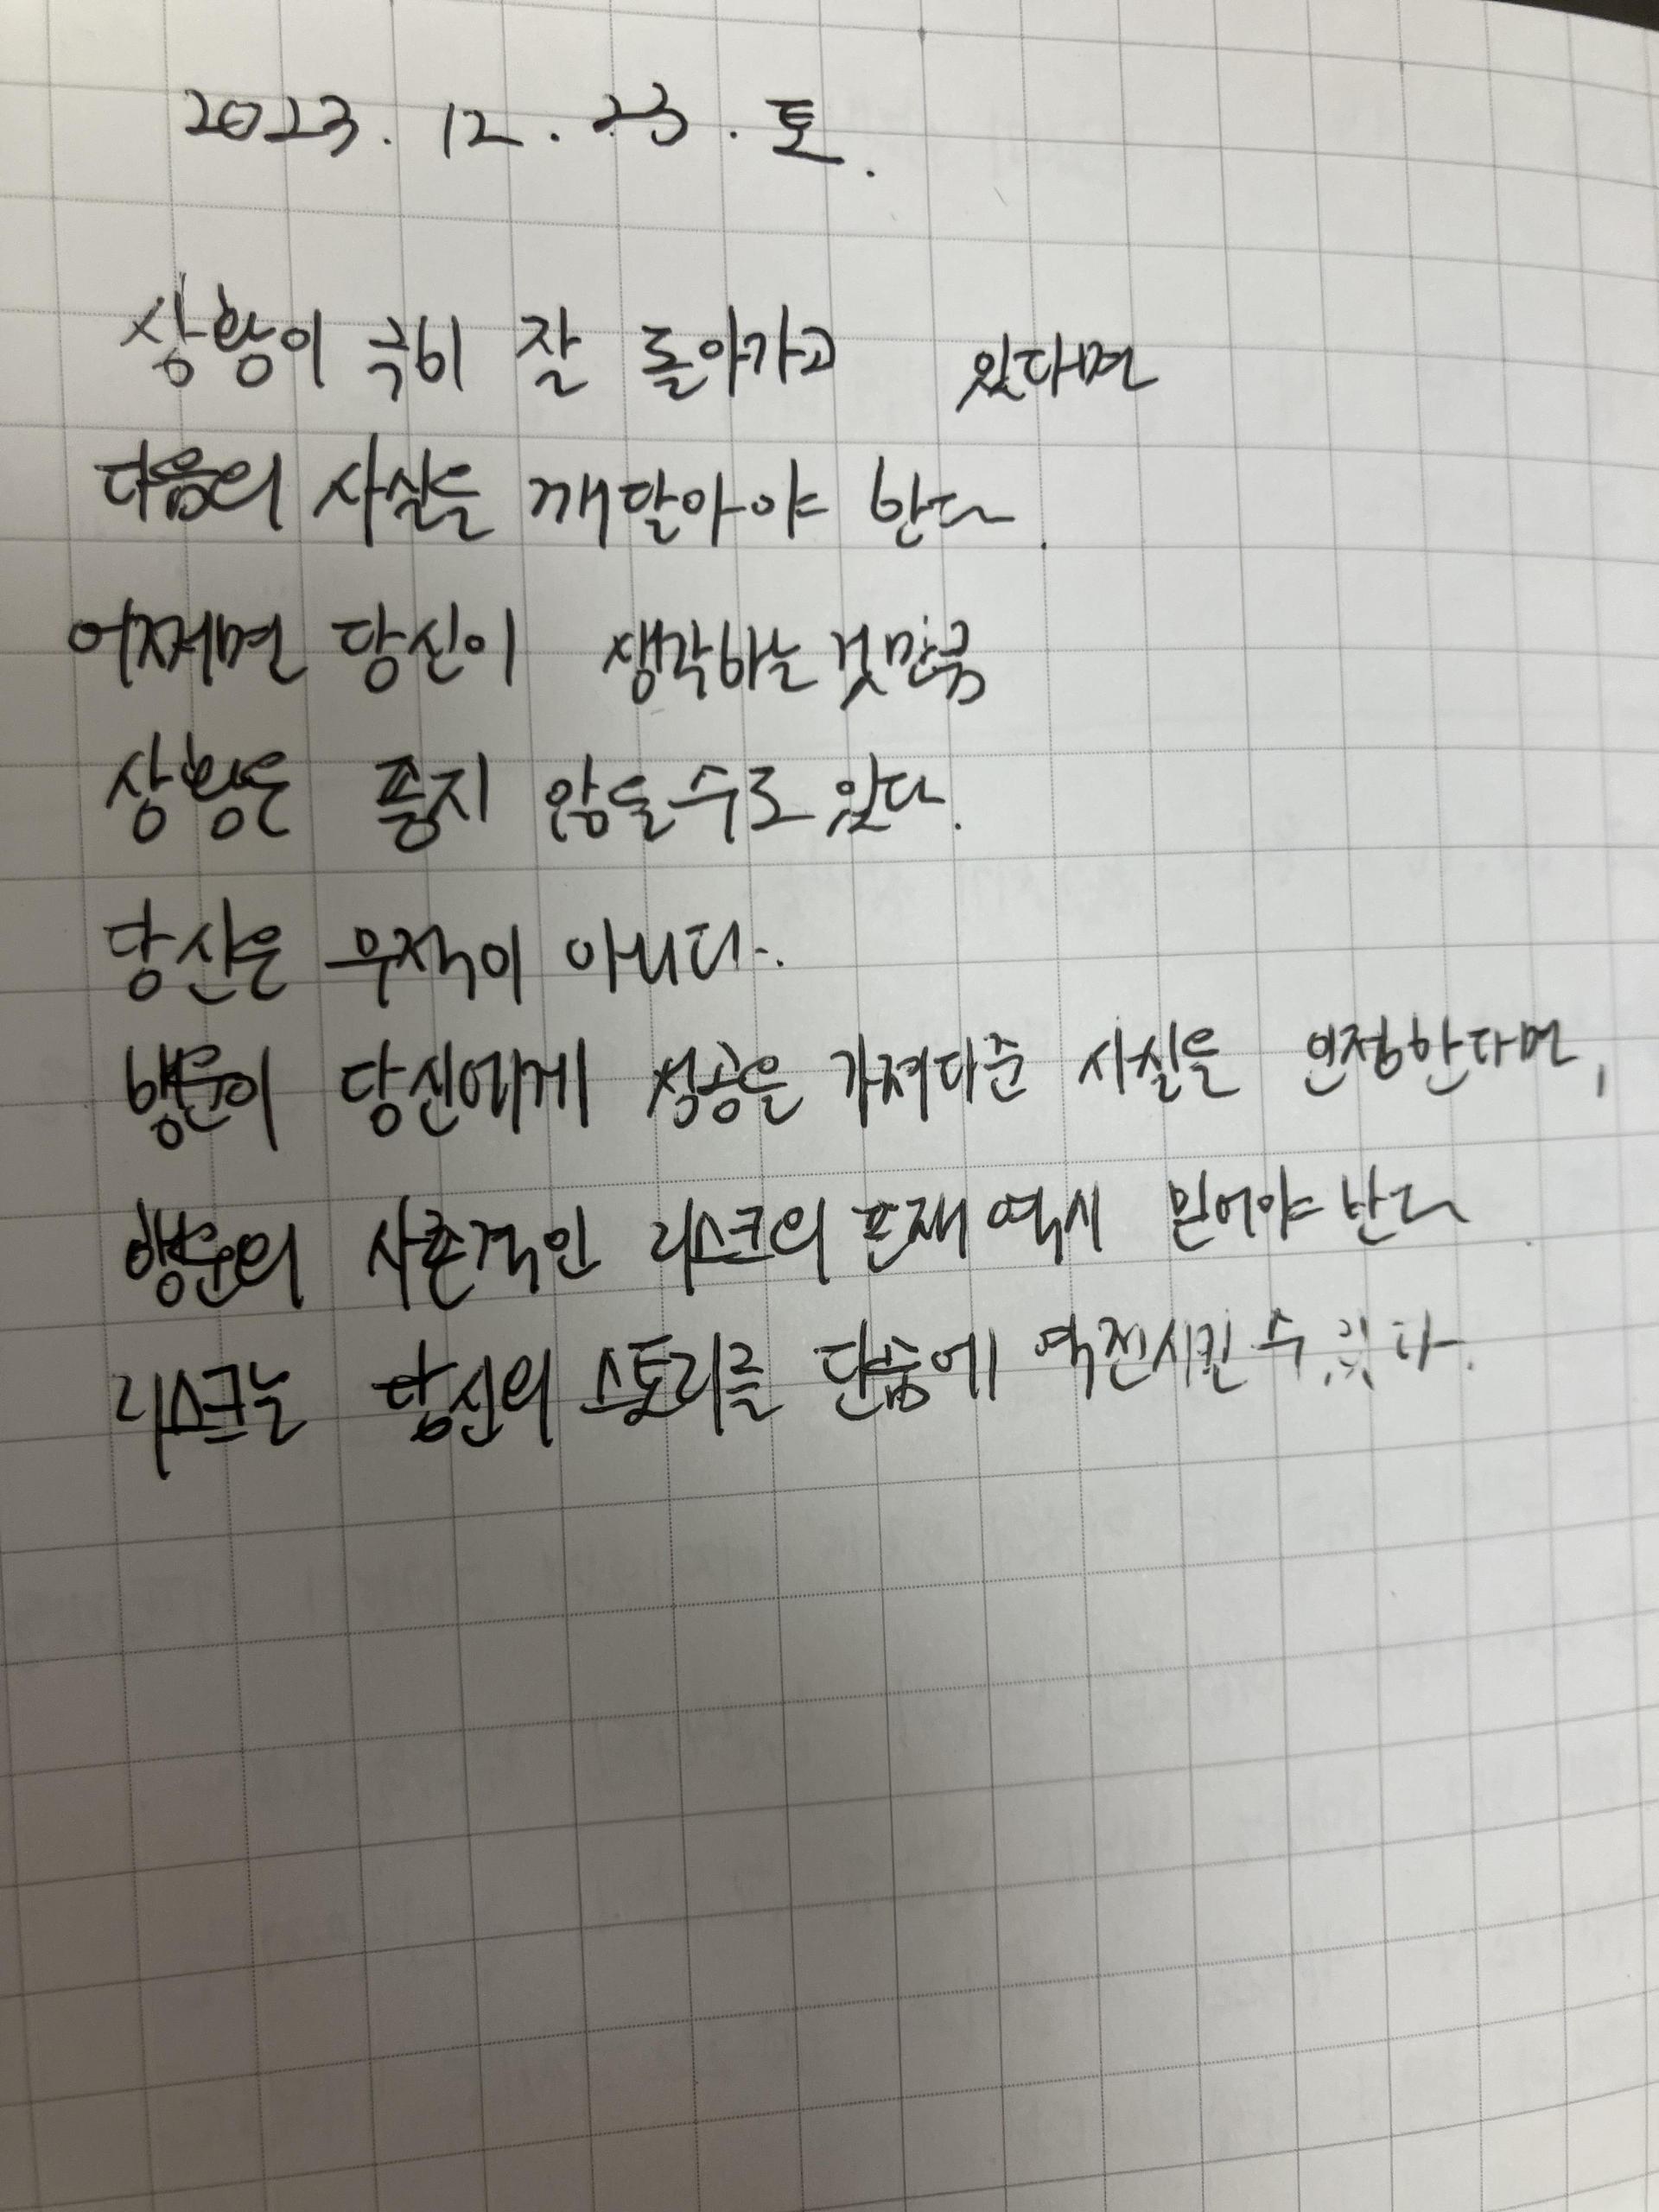 2023. 12. 23. 토.
상황이 극히 잘 돌아가고 있다면
다음의 사실을 깨달아야 한다.
어쩌면 당신이 생각하는 것만큼
상황은 좋지 않을 수도 있다.
당신은 무적이 아니다.
행운이 당신에게 성공을 가져다준 사실을 인정한다면,
행운의 사촌격인 리스크의 존재 역시 믿어야 한다
리스크는 당신의 스토리를 단숨에 역전시킬 수 있다.